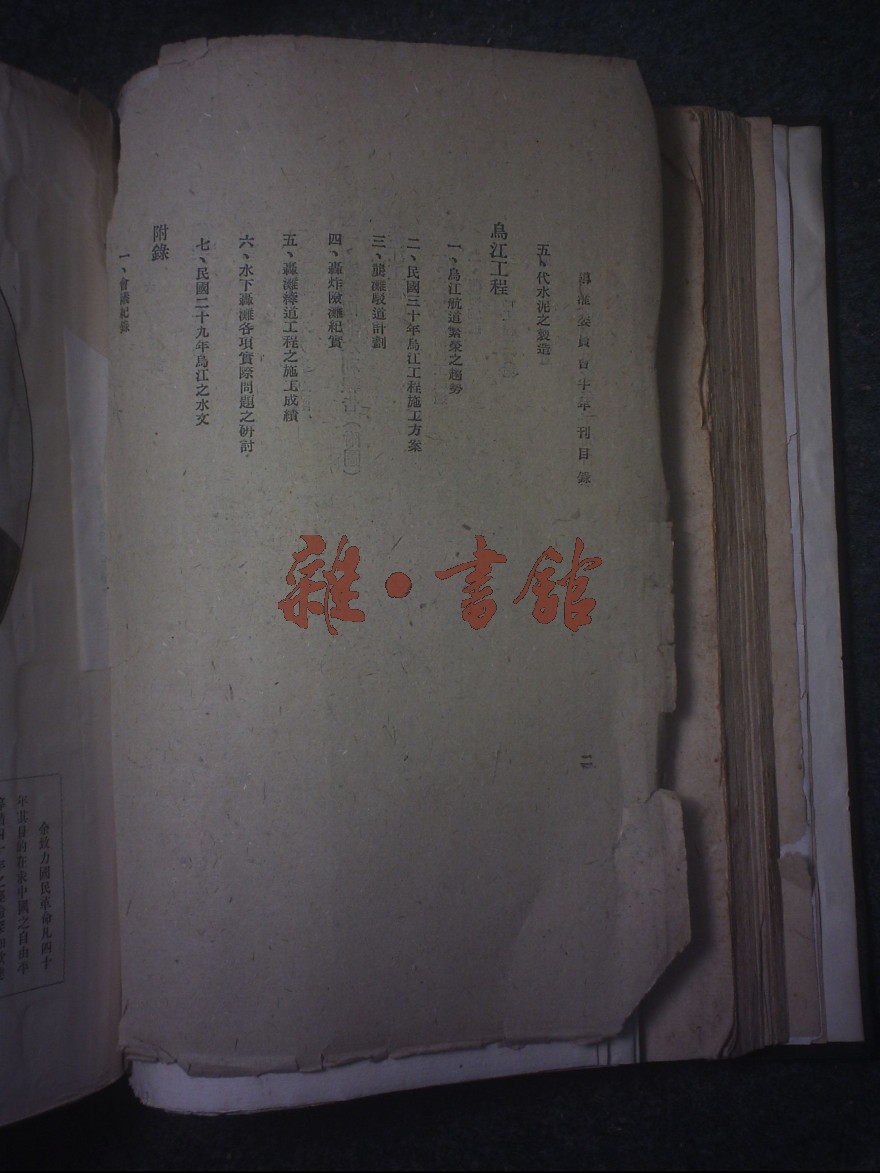 導淮委員會十年刊目錄
二
五、代水泥之製造
烏江工程
一、烏江航道繁榮之趨勢
二、民國三十年烏江工程施工方案
三、龔灘駁道計劃
四、轟炸險灘紀實
五、轟灘縴道工程之施工成績
六、水下轟灘各項實際問題之研討
七、民國二十九年烏江之水文
附錄
一、會議紀錄
雜·書館
余致力國民革命凡四十
年其目的在求中國之自由平